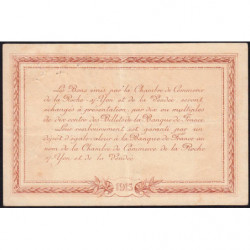 Les Bons émis par la Chambre de Commerce
de la Roche s/ Yon et de la Vendée seront
échangés à présentation, par dix ou multiples
de dix contre des Billets de la Banque de France
Leur remboursement est garanti par un
dépôt d'égale valeur à la Banque de France au
nom de la Chambre de Commerce de la Roche
s/ Yon et de la Vendée.
1915